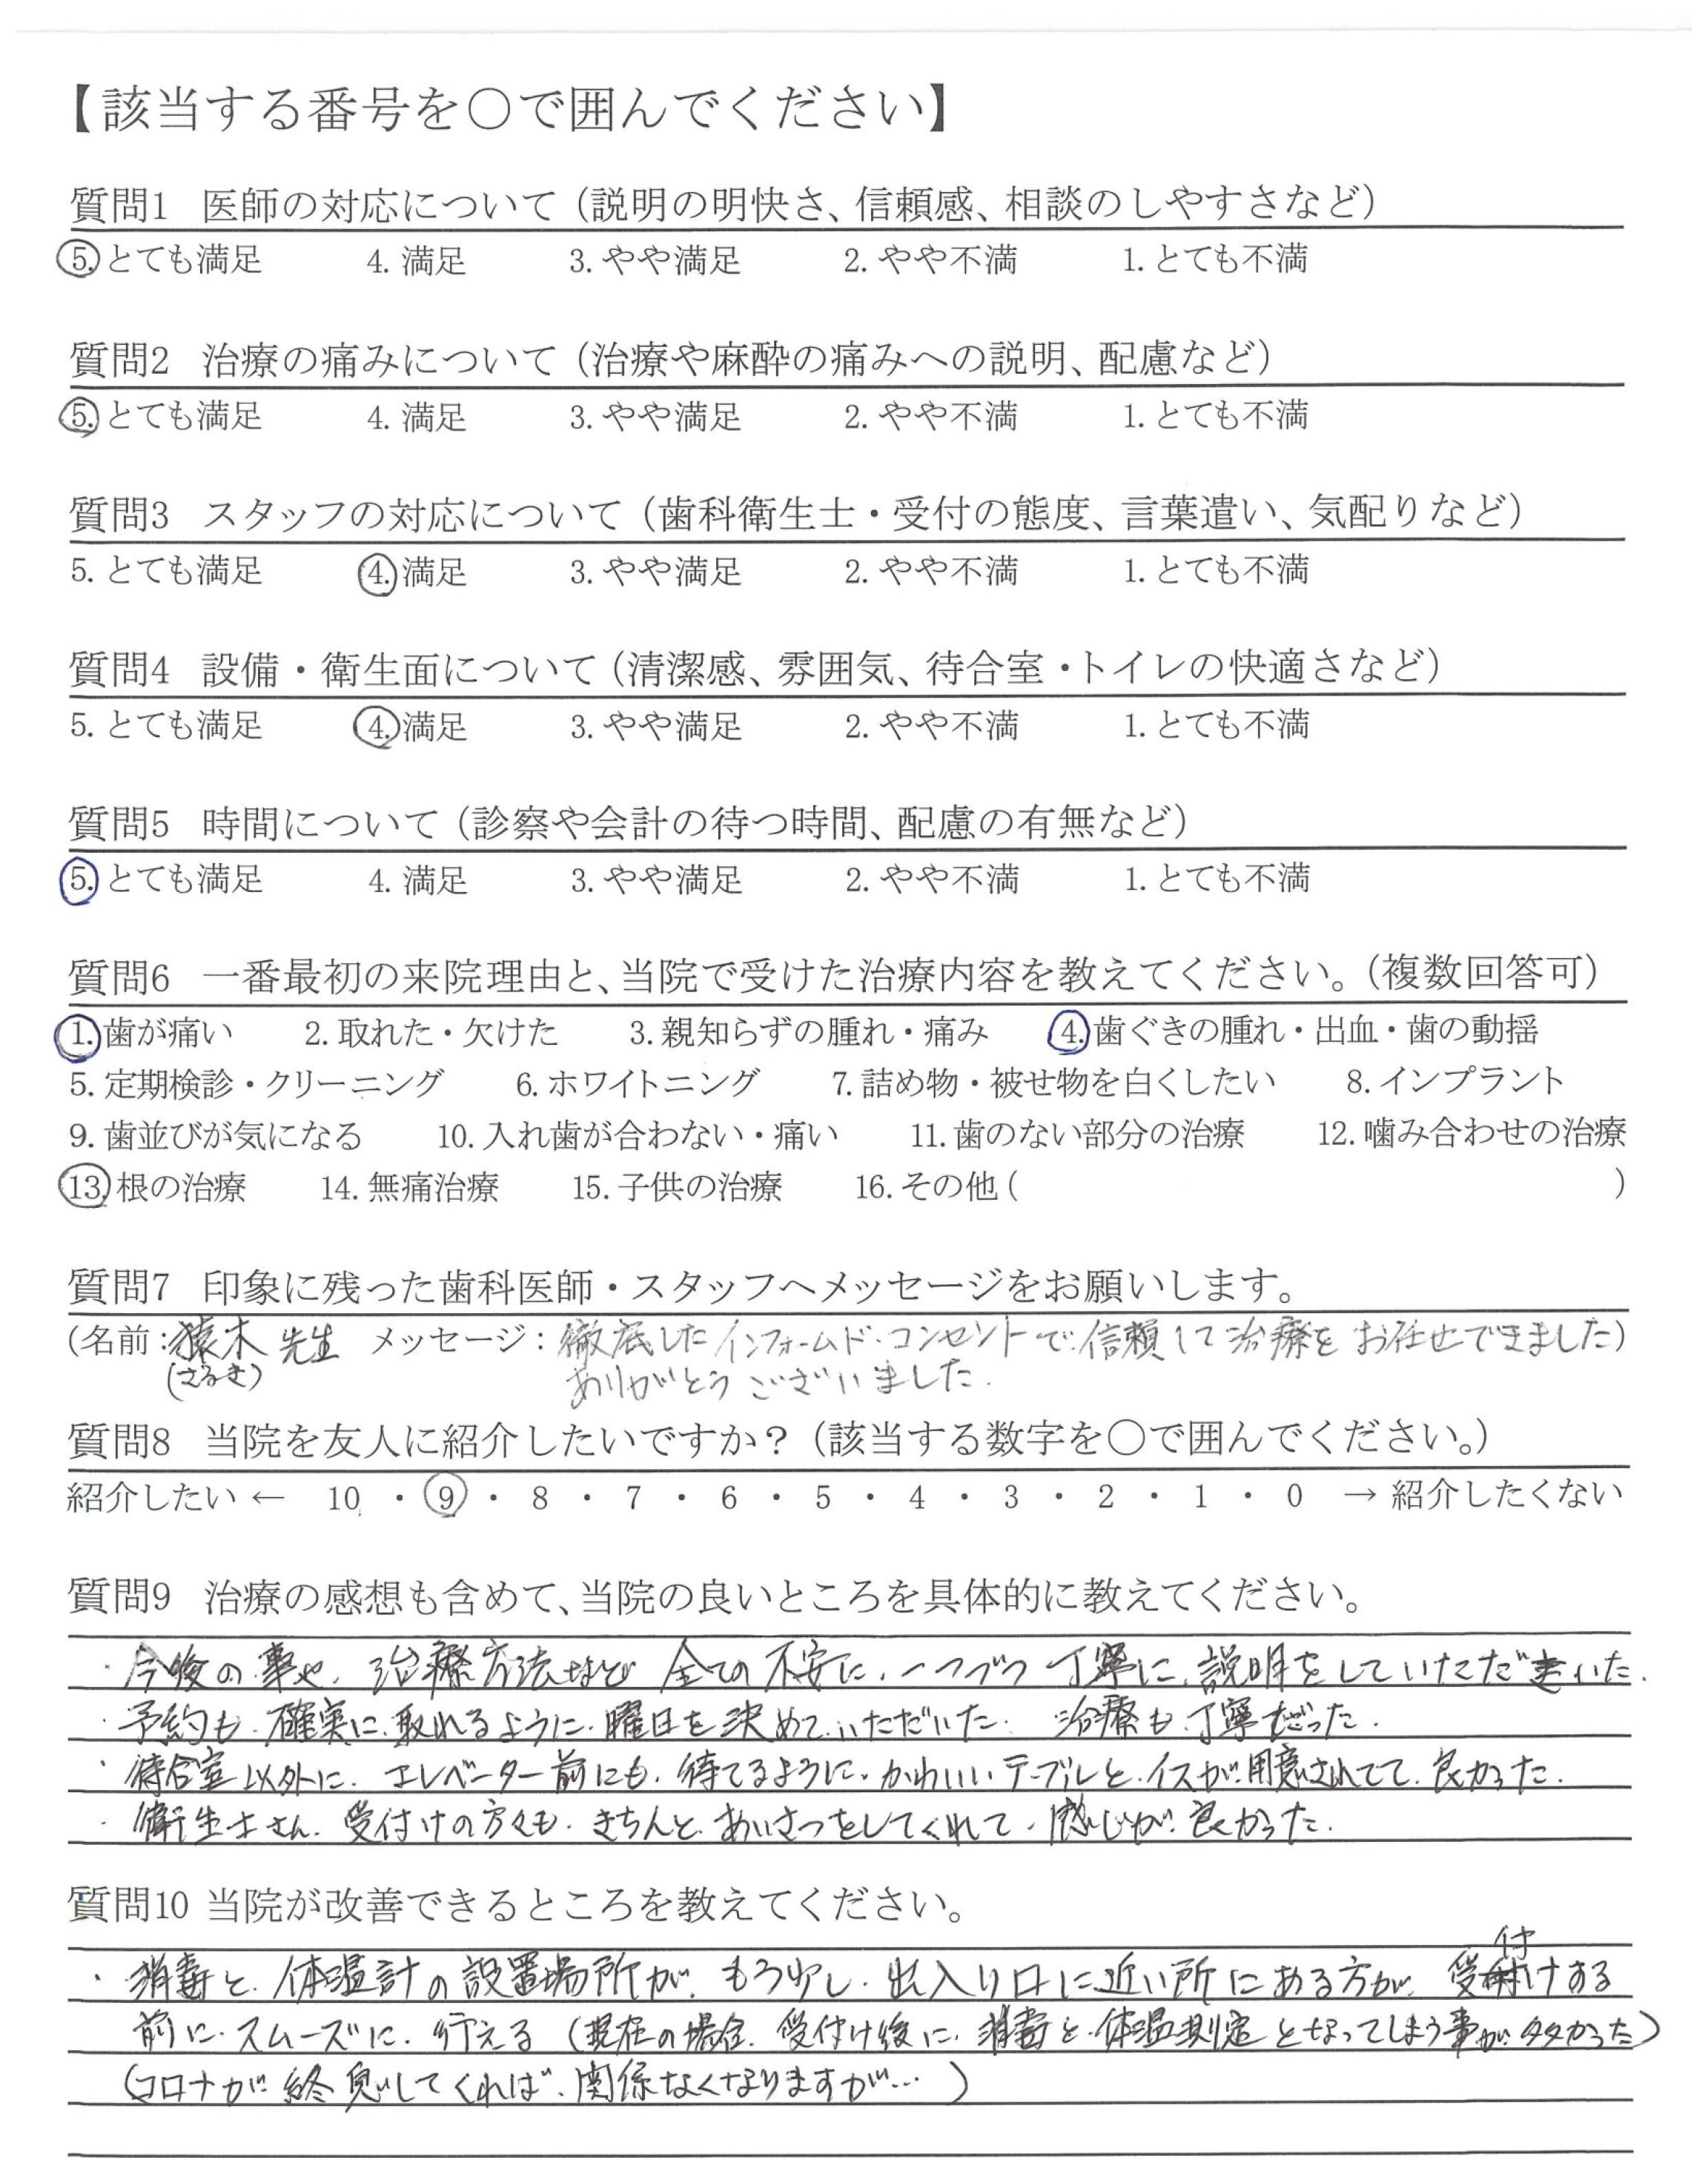 【該当する番号を○で囲んでください】
質問1 医師の対応について（説明の明快さ、信頼感、相談のしやすさなど）
5. とても満足 4. 満足 3. やや満足 2. やや不満 1. とても不満
質問2 治療の痛みについて（治療や麻酔の痛みへの説明、配慮など）
5. とても満足 4. 満足 3. やや満足 2. やや不満 1. とても不満
質問3 スタッフの対応について（歯科衛生士・受付の態度、言葉遣い、気配りなど）
5. とても満足 4. 満足 3. やや満足 2. やや不満 1. とても不満
質問4 設備・衛生面について（清潔感、雰囲気、待合室・トイレの快適さなど）
5. とても満足 4. 満足 3. やや満足 2. やや不満 1. とても不満
質問5 時間について（診察や会計の待つ時間、配慮の有無など）
5. とても満足 4. 満足 3. やや満足 2. やや不満 1. とても不満
質問6 一番最初の来院理由と、当院で受けた治療内容を教えてください。（複数回答可）
1. 歯が痛い 2. 取れた・欠けた 3. 親知らずの腫れ・痛み 4. 歯ぐきの腫れ・出血・歯の動揺
5. 定期検診・クリーニング 6. ホワイトニング 7. 詰め物・被せ物を白くしたい 8. インプラント
9. 歯並びが気になる 10. 入れ歯が合わない・痛い 11. 歯のない部分の治療 12. 噛み合わせの治療
13. 根の治療 14. 無痛治療 15. 子供の治療 16. その他（ ）
質問7 印象に残った歯科医師・スタッフへメッセージをお願いします。
（名前：猿木 先生 メッセージ：徹底したインフォームド・コンセントで信頼して治療をお任せできました）
（さるき） ありがとうございました.
質問8 当院を友人に紹介したいですか？（該当する数字を○で囲んでください。）
紹介したい ← 10 ・ 9 ・ 8 ・ 7 ・ 6 ・ 5 ・ 4 ・ 3 ・ 2 ・ 1 ・ 0 → 紹介したくない
質問9 治療の感想も含めて、当院の良いところを具体的に教えてください。
・今後の事や、治療方法など 全ての不安に、一つづつ 丁寧に、説明をしていただきいた.
・予約も、確実に、取れるように、曜日を決めて、いただいた. 治療も、丁寧だった.
・待合室以外に、エレベーター前にも、待てるように、かわいいテーブルと、イスが、用意されてて、良かった.
・衛生士さん、受付けの方々も、きちんと、あいさつをしてくれて、感じが、良かった.
質問10 当院が改善できるところを教えてください。
・消毒と、体温計の設置場所が、もう少し、出入り口に近い所にある方が、受付けする
前に、スムーズに、行える（現在の場合、受付け後に、消毒と、体温測定となってしまう事が、多かった）
（コロナが終息してくれば、関係なくなりますが…）